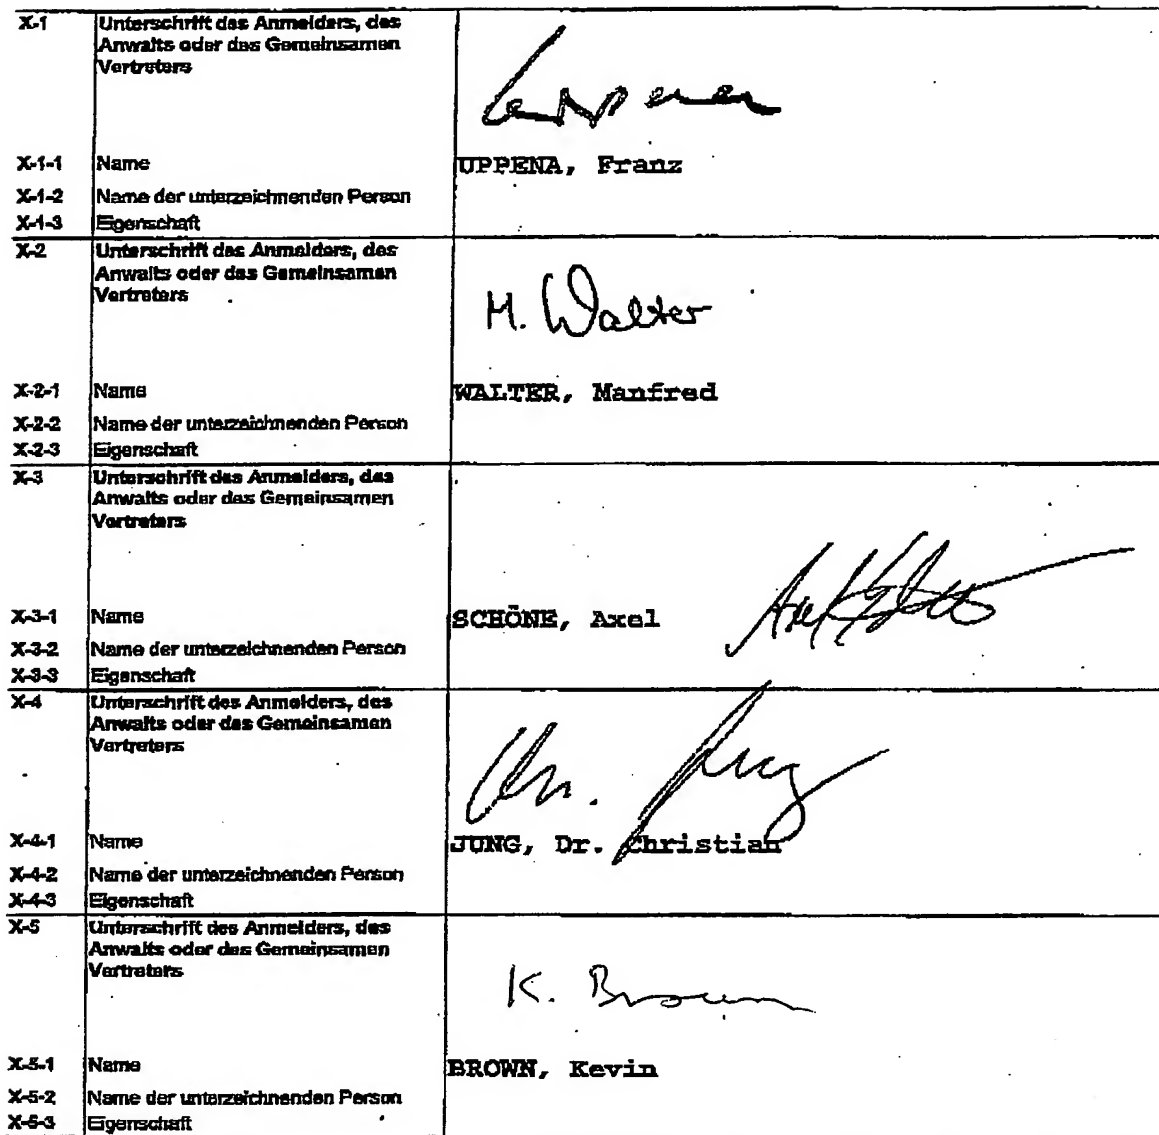 X-1 Unterschrift des Anmelders, des
Anwalts oder des Gemeinsamen
Vertreters
X-1-1 Name UPPENA, Franz
X-1-2 Name der unterzeichnenden Person
X-1-3 Eigenschaft
X-2 Unterschrift des Anmelders, des
Anwalts oder des Gemeinsamen
Vertreters
M. Walter
X-2-1 Name WALTER, Manfred
X-2-2 Name der unterzeichnenden Person
X-2-3 Eigenschaft
X-3 Unterschrift des Anmelders, des
Anwalts oder des Gemeinsamen
Vertreters
X-3-1 Name SCHÖNE, Axel
X-3-2 Name der unterzeichnenden Person
X-3-3 Eigenschaft
X-4 Unterschrift des Anmelders, des
Anwalts oder des Gemeinsamen
Vertreters
X-4-1 Name JUNG, Dr. Christian
X-4-2 Name der unterzeichnenden Person
X-4-3 Eigenschaft
X-5 Unterschrift des Anmelders, des
Anwalts oder des Gemeinsamen
Vertreters
K. Brown
X-5-1 Name BROWN, Kevin
X-5-2 Name der unterzeichnenden Person
X-5-3 Eigenschaft